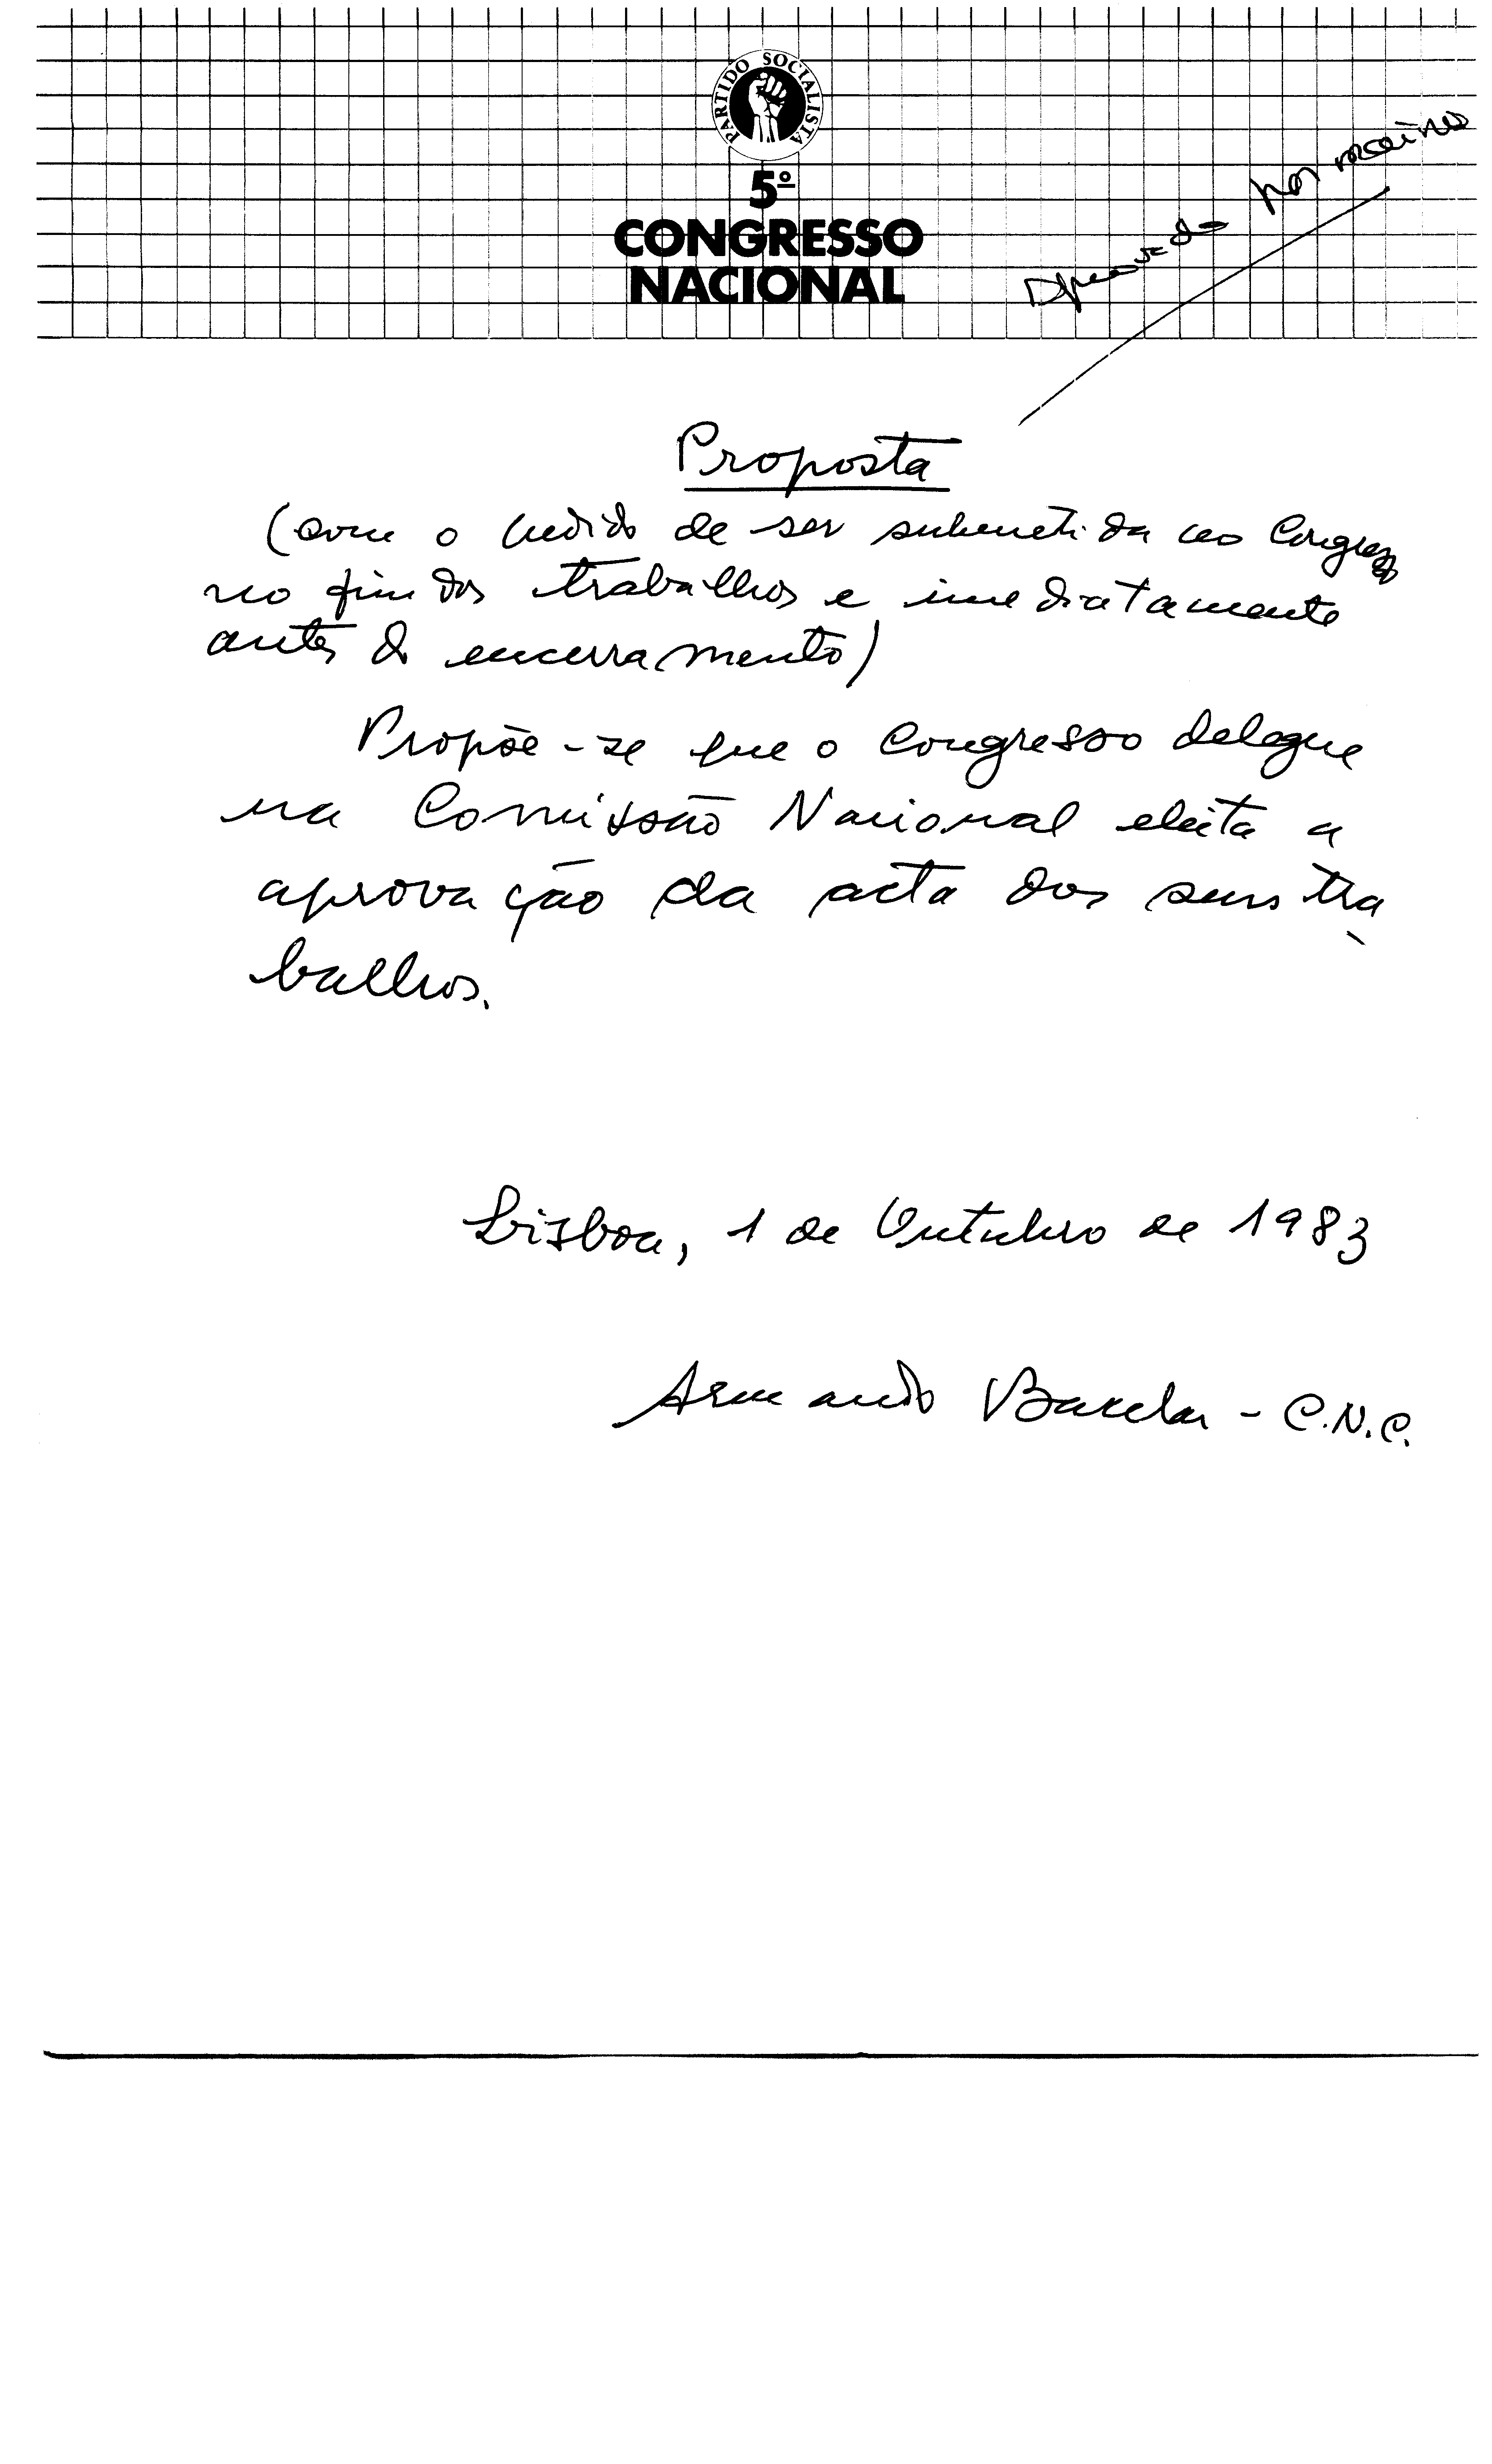 PARTIDO SOCIALISTA
5º
CONGRESSO
NACIONAL
Aprovada por maioria
Proposta
(com o pedido de ser submetida ao Congresso
no fim dos trabalhos e imediatamente
antes do encerramento)
Propõe-se que o Congresso delegue
na Comissão Nacional eleita a
aprovação da acta dos seus tra
balhos.
Lisboa, 1 de Outubro de 1983
Armando Bacelar - C.N.C.